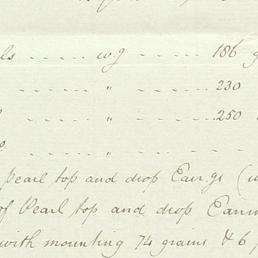 ls - - - - - w.g - - - - - 186 g
- - - - - " - - - - - 230
- - - - - " - - - - - 250
- - - - - " - - - - -
pearl top and drop Ear.gs (w
of Pearl top and drop Earin
with mounting 74 grains & 6 p